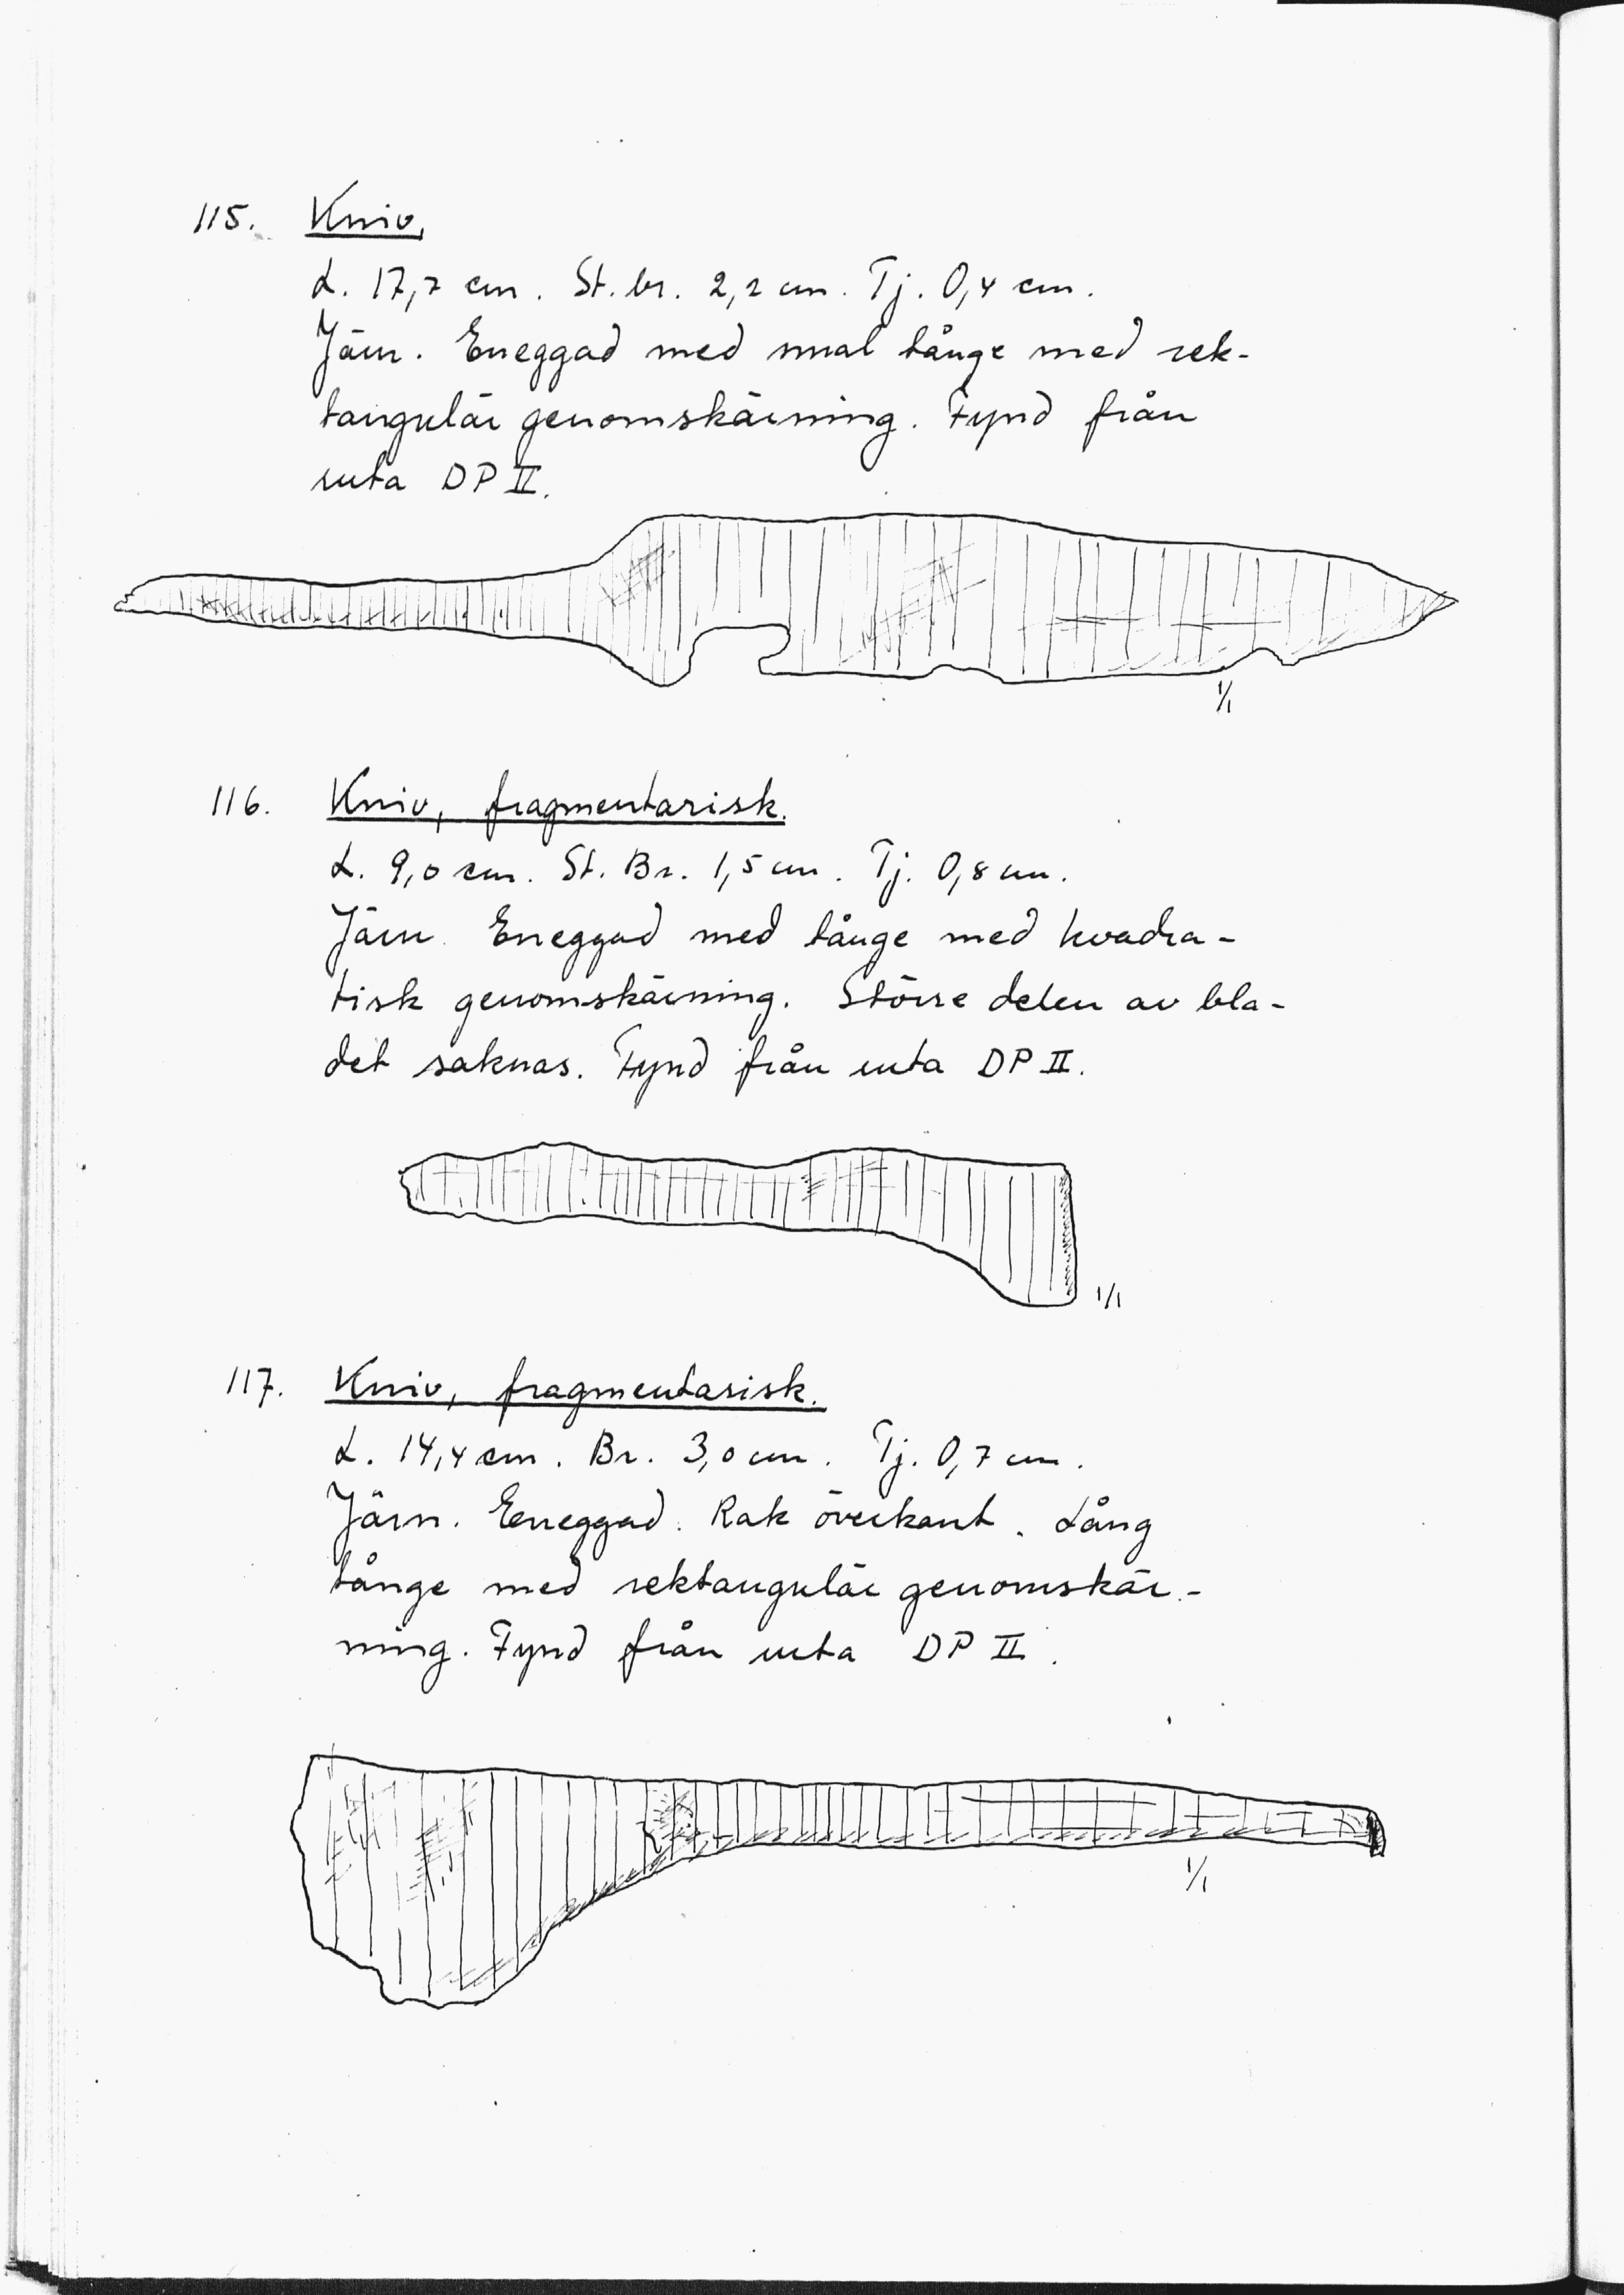 115. Kniv,
L. 17,7 cm. St. br. 2,2 cm. Tj. 0,4 cm.
Järn. Eneggad med smal tånge med rek-
tangulär genomskärning. Fynd från
ruta DP II.
1/1
116. Kniv, fragmentarisk.
L. 9,0 cm. St. Br. 1,5 cm. Tj. 0,8 cm.
Järn. Eneggad med tånge med kvadra-
tisk genomskärning. Större delen av bla-
det saknas. Fynd från ruta DP II.
1/1
117. Kniv, fragmentarisk.
L. 14,4 cm. Br. 3,0 cm. Tj. 0,7 cm.
Järn. Eneggad. Rak överkant. Lång
tånge med rektangulär genomskär-
ning. Fynd från ruta DP II.
1/1